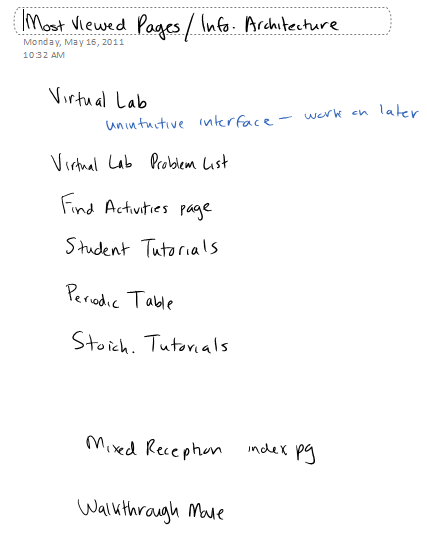 Most Viewed Pages / Info. Architecture
Monday, May 16, 2011
10:32 AM
Virtual Lab
unintuitive interface – work on later
Virtual Lab Problem List
Find Activities page
Student Tutorials
Periodic Table
Stoich. Tutorials
Mixed Reception index pg
Walkthrough